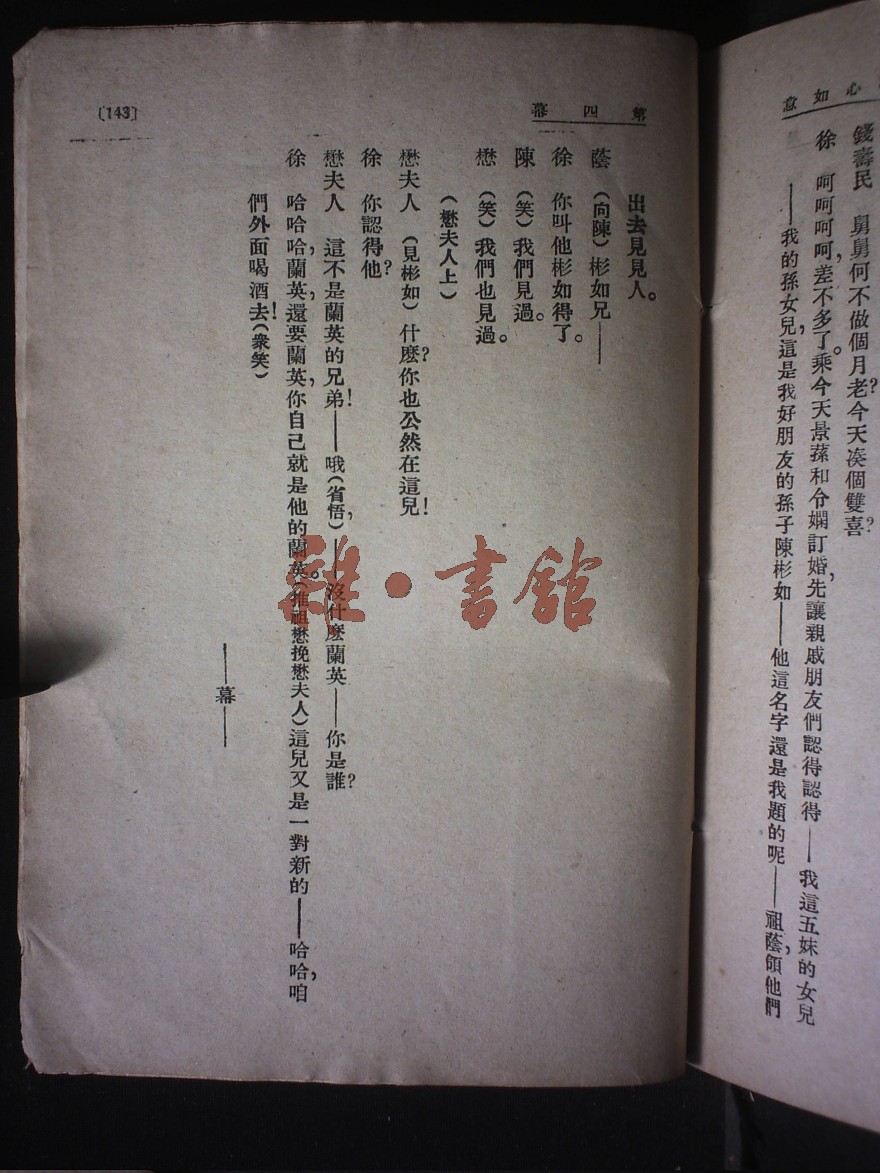 心如意
錢壽民　舅舅何不做個月老？今天湊個雙喜？
徐　呵呵呵呵，差不多了。乘今天景蓀和令嫻訂婚，先讓親戚朋友們認得認得——我這五妹的女兒
——我的孫女兒，這是我好朋友的孫子陳彬如——他這名字還是我題的呢——祖蔭，領他們
第四幕
〔143〕
出去見見人。
蔭　（向陳）彬如兄——
徐　你叫他彬如得了。
陳　（笑）我們見過。
懋　（笑）我們也見過。
（懋夫人上）
懋夫人　（見彬如）什麼？你也公然在這兒！
徐　你認得他？
懋夫人　這不是蘭英的兄弟！——哦（省悟），——沒什麽蘭英——你是誰？
徐　哈哈哈，蘭英，還要蘭英，你自己就是他的蘭英。（推祖懋挽懋夫人）這兒又是一對新的——哈哈，咱
們外面喝酒去！（衆笑）
——幕——
雜·書館